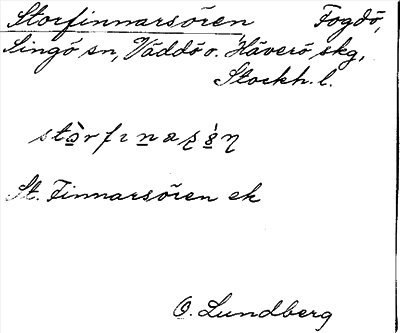 Storfinnarsören Fogdö,
Singö sn, Väddö o. Häverö skg,
Stockh. l.
stòrfɪnaʂȫ̀ɳ
St. Finnarsören ek
O. Lundberg